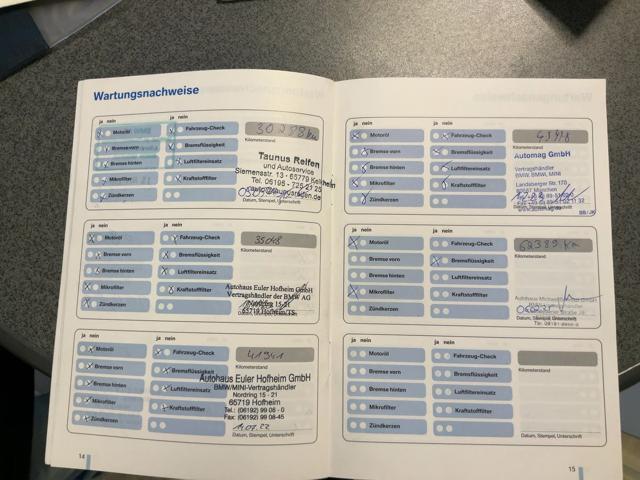 Wartungsnachweise
ja nein ja nein
Motoröl Fahrzeug-Check 30288km
Kilometerstand
Bremse vorn Bremsflüssigkeit
Bremse hinten Luftfiltereinsatz
Mikrofilter Kraftstofffilter
Zündkerzen
Taunus Reifen
und Autoservice
Siemensstr. 13 - 65779 Kelkheim
Tel. 06195 -
Datum, Stempel, Unterschrift
ja nein ja nein
Motoröl Fahrzeug-Check 35048
Kilometerstand
Bremse vorn Bremsflüssigkeit
Bremse hinten Luftfiltereinsatz
Mikrofilter Kraftstofffilter
Zündkerzen
Autohaus Euler Hofheim GmbH
Vertragshändler der BMW AG
65719 Hofheim/TS
ja nein ja nein
Motoröl Fahrzeug-Check 41941
Kilometerstand
Bremse vorn Bremsflüssigkeit
Bremse hinten Luftfiltereinsatz
Mikrofilter Kraftstofffilter
Zündkerzen
Autohaus Euler Hofheim GmbH
BMW/MINI-Vertragshändler
Nordring 15 - 21
65719 Hofheim
Tel.: (06192) 99 08 - 0
Fax: (06192) 99 08-45
Datum, Stempel, Unterschrift
14
ja nein ja nein
Motoröl Fahrzeug-Check
Kilometerstand
Bremse vorn Bremsflüssigkeit
Bremse hinten Luftfiltereinsatz
Mikrofilter Kraftstofffilter
Zündkerzen
Automag GmbH
Vertragshändler
BMW BMWi, MINI
Landsberger Str. 170
München
Datum, Stempel, Unterschrift
ja nein ja nein
Motoröl Fahrzeug-Check 62389 km
Kilometerstand
Bremse vorn Bremsflüssigkeit
Bremse hinten Luftfiltereinsatz
Mikrofilter Kraftstofffilter
Zündkerzen
Autohaus
Datum, Stempel, Unterschrift
ja nein ja nein
Motoröl Fahrzeug-Check
Kilometerstand
Bremse vorn Bremsflüssigkeit
Bremse hinten Luftfiltereinsatz
Mikrofilter Kraftstofffilter
Zündkerzen
Datum, Stempel, Unterschrift
15